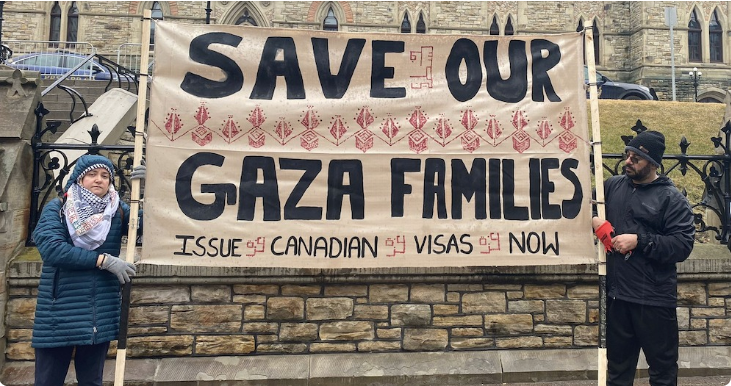 SAVE OUR
GAZA FAMILIES
ISSUE CANADIAN VISAS NOW